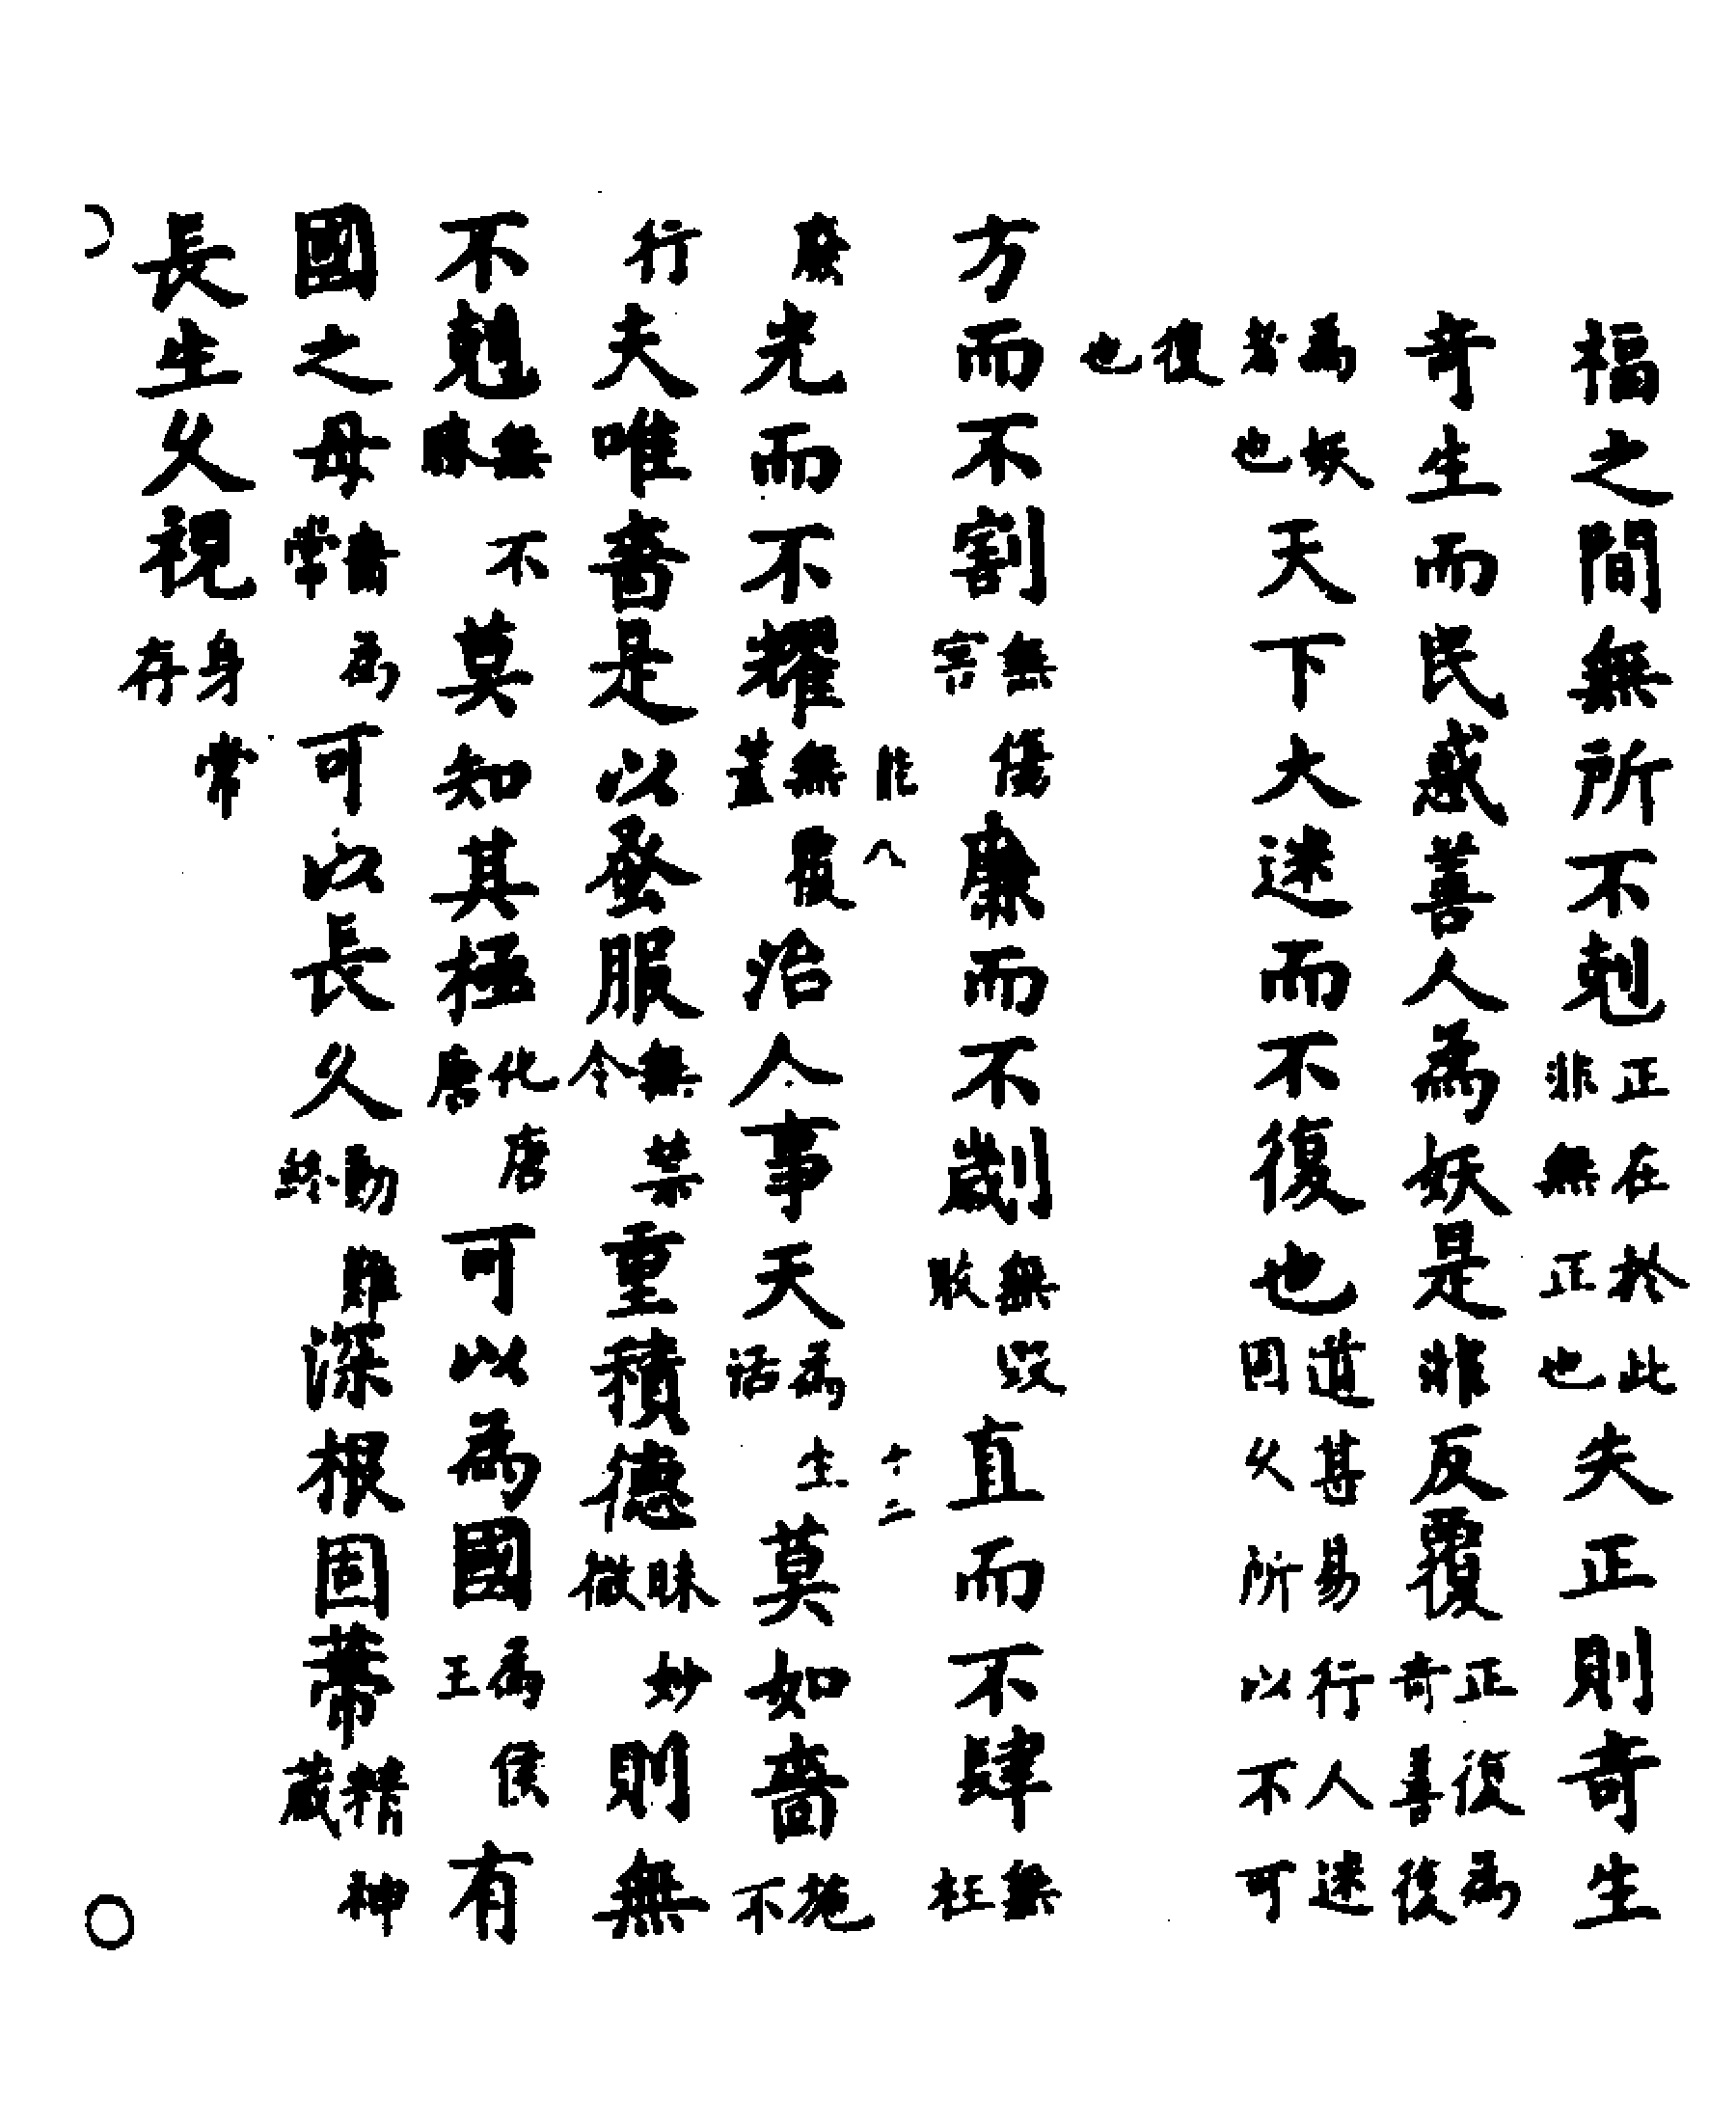 福之間無所不剋正在於此非無正也失正則奇生
奇生而民惑善人為妖是非反覆正復為奇善復
為妖者也天下大迷而不復也道甚易行人迷固久所以不可
復也
方而不割無傷害廉而不劌無毀敗直而不肆無枉
廢光而不耀無覆蓋治人事天為生活莫如嗇施不
行夫唯嗇是以蚤服無禁令重積德昧妙微則無
不剋無不勝莫知其極化唐唐可以為國為侯王有
國之母嗇為常可以長久動難終深根固蔕精神藏
長生久視身常存